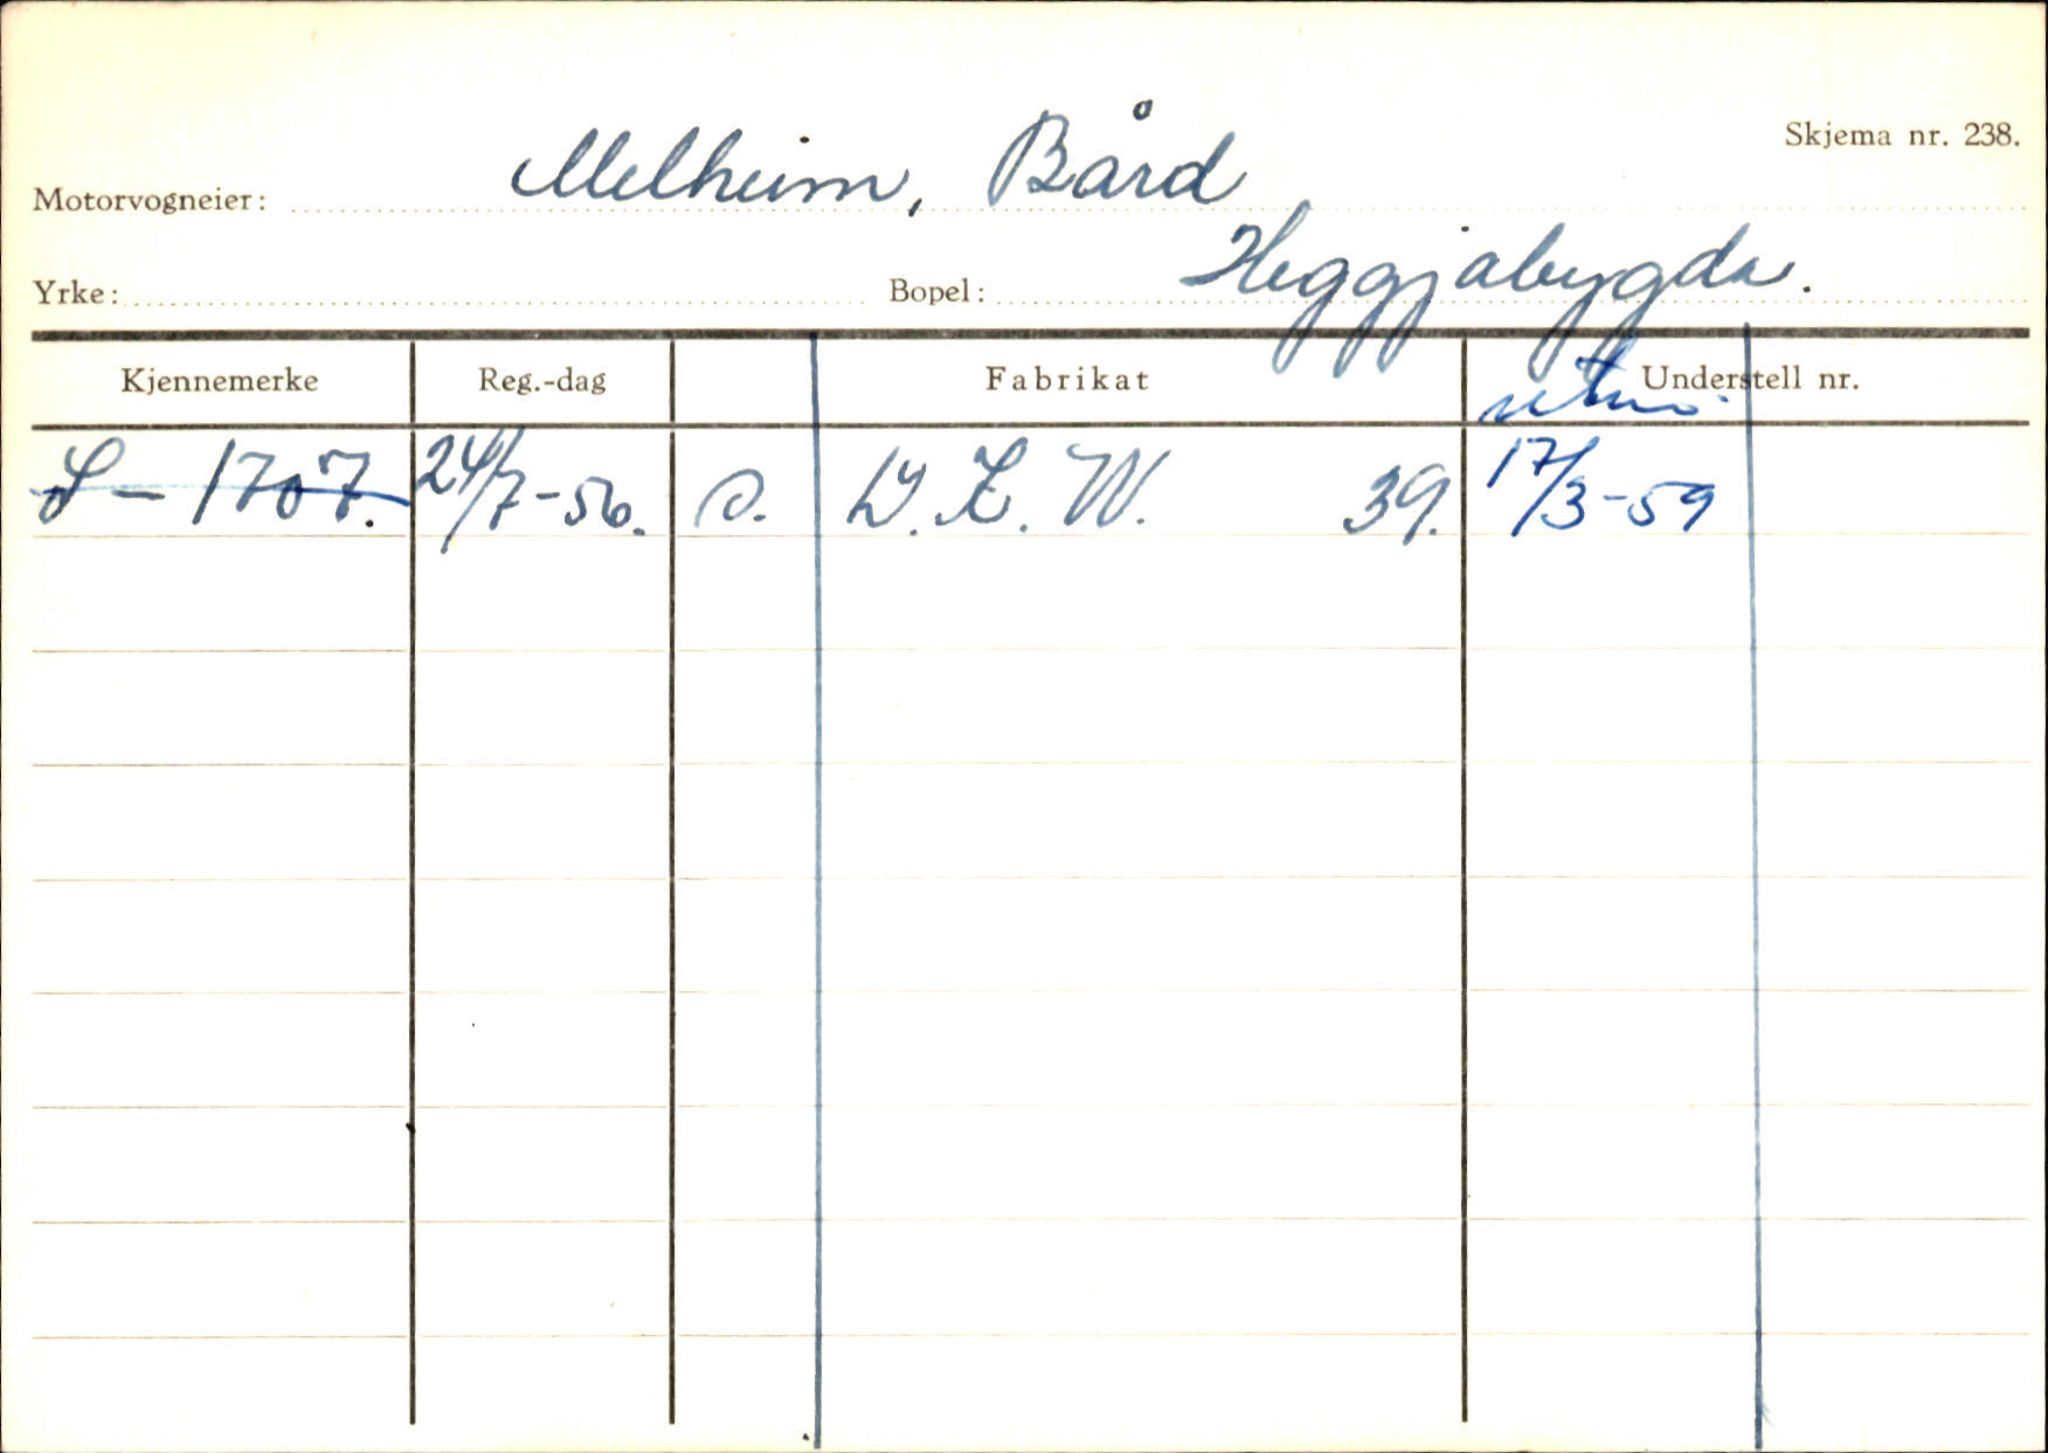 Skjema nr. 238.
Motorvogneier: Melheim, Bård
Yrke: Bopel: Heggjabygda.
Kjennemerke Reg.-dag Fabrikat Understell nr.
S-1707. 24/7-56. D.K.W. 39. 17/3-59